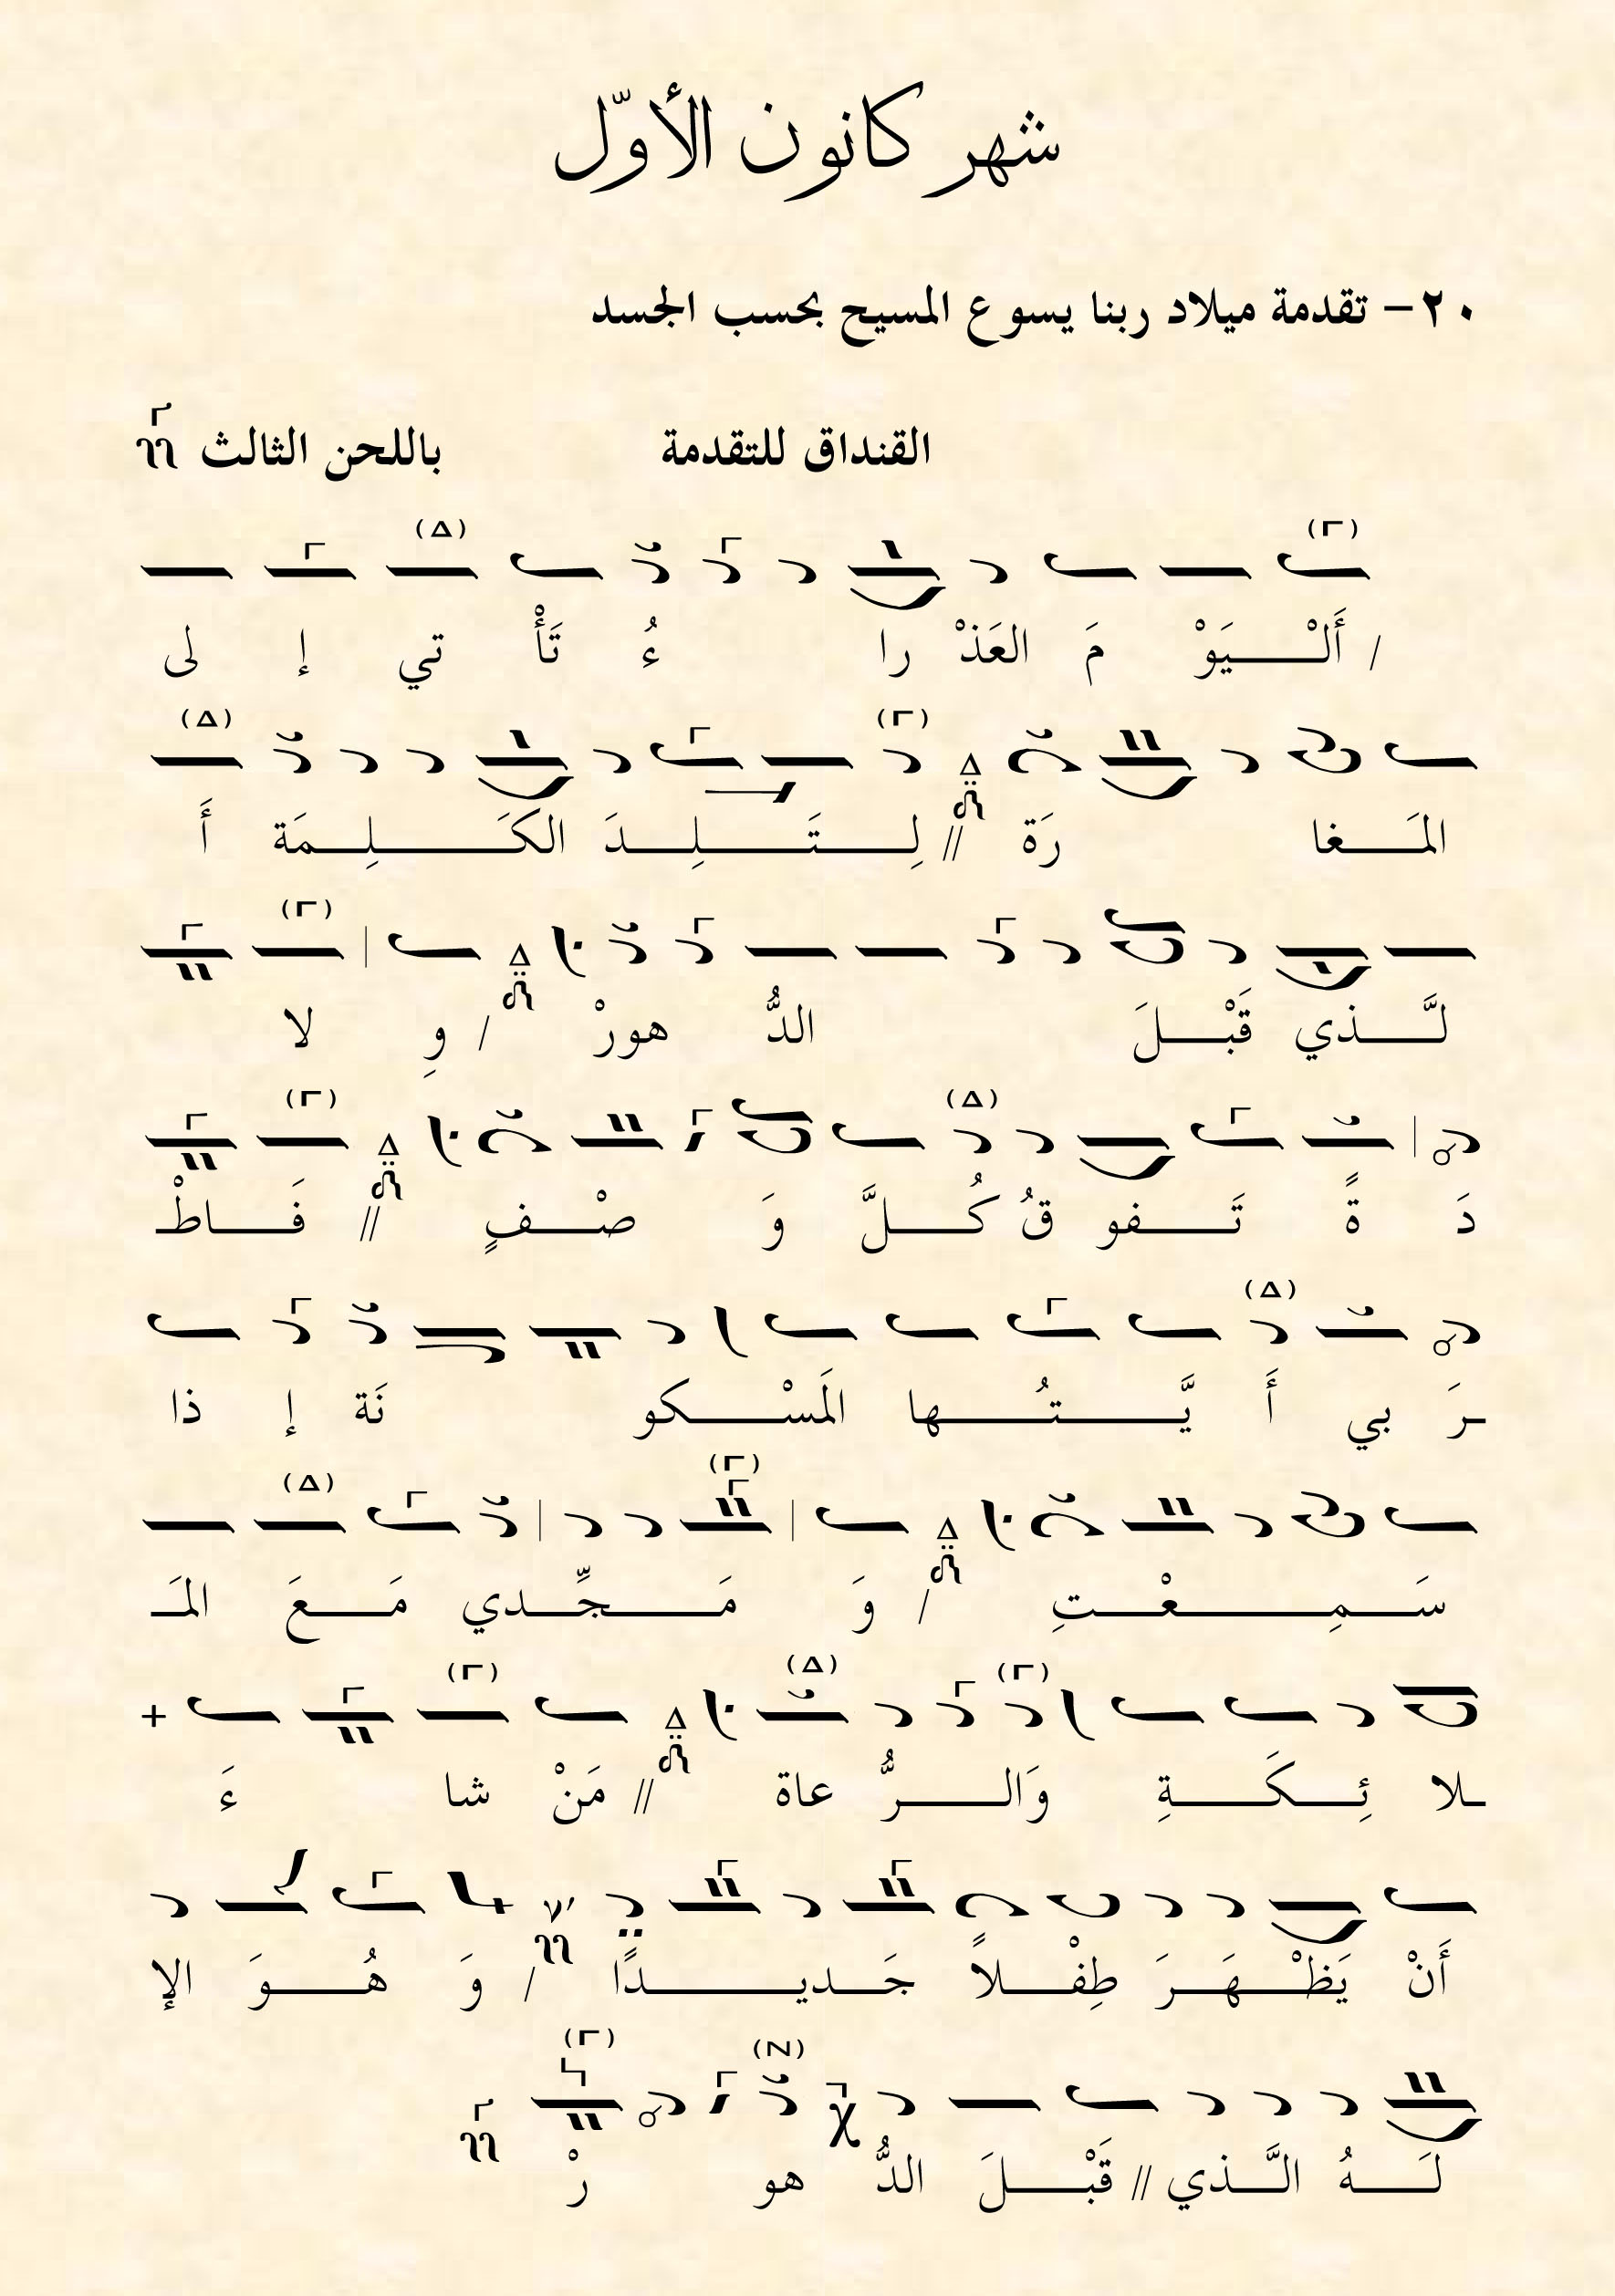 شهر كانون الأوّل
٢٠- تقدمة ميلاد ربنا يسوع المسيح بحسب الجسد
القنداق للتقدمة باللحن الثالث
/ أَلْـــيَوْ مَ العَذْ را ءُ تَأْ تي إ لى
المَـــغا رَة // لِـــتَـــلِـــدَ الكَـــلِـــمَة أَ
لَّـــذي قَبْـــلَ الدُّ هورْ / وِ لا
دَ ةً تَـــفو قُ كُـــلَّ وَ صْـــفٍ // فَـــاطْـ
ـرَ بي أَ يَّـــتُـــها المَسْـــكو نَة إ ذا
سَـــمِـــعْـــتِ / وَ مَـــجِّـــدي مَـــعَ المَـ
ـلا ئِـــكَـــةِ وَالـــرُّ عاة // مَنْ شا ءَ
أَنْ يَظْـــهَـــرَ طِفْـــلاً جَـــديـــدًا / وَ هُـــوَ الإ
لَـــهُ الَّـــذي // قَبْـــلَ الدُّ هو رْ